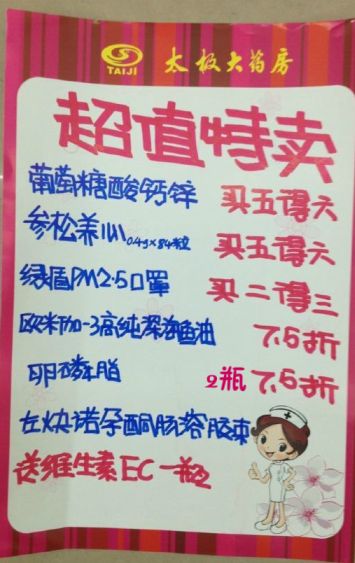 TAIJI
太极大药房
超值特卖
葡萄糖酸钙锌 买五得六
参松养心 0.4g×84粒 买五得六
绿盾PM2.5口罩 买二得三
欧米加-3高纯深海鱼油 7.5折
卵磷脂 2瓶 7.5折
左炔诺孕酮肠溶胶束
送维生素EC一瓶